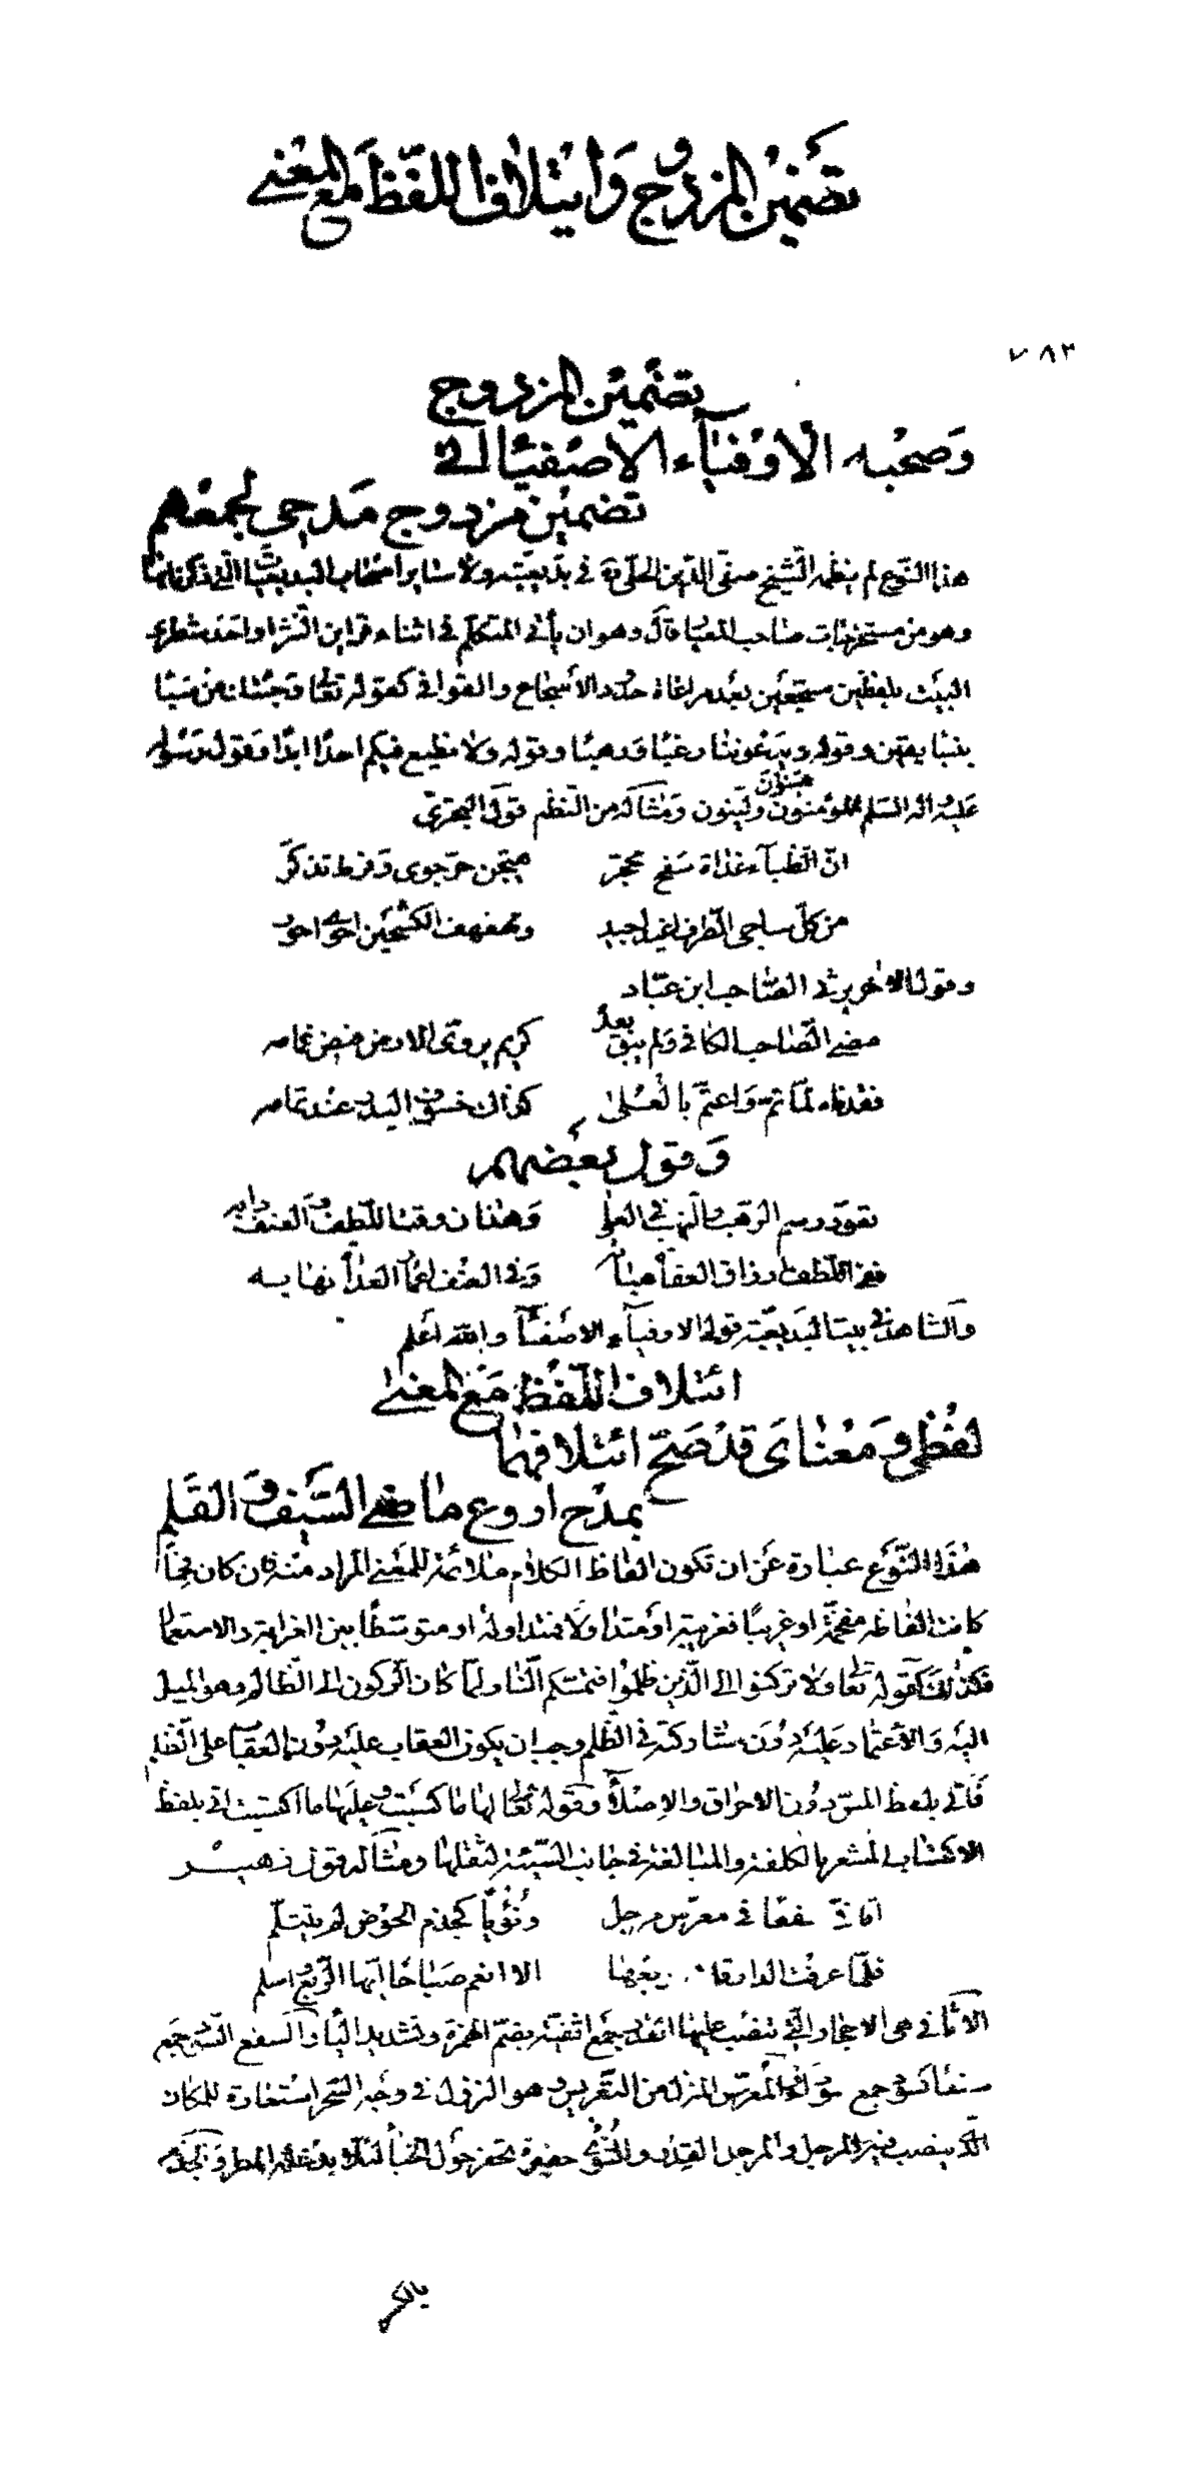 تضمين المزدوج وائتلاف اللفظ مع المعنى
٧٨٣
تضمين المزدوج
وصحبه الاوفياء الاصفياء التى
تضمين مزدوج مدحى لجمعهم
هذا النوع لم ينظمه الشيخ صفى الدين الحلى فى بديعيته ولا ساير اصحاب البديعيات التى
وهو من مستخرجات صاحب المعيار قال وهو ان يأتى المتكلم فى اثناء قراين النثر او احد شطرى
البيت بلفظين مسجعين بعد مراعاة حدود الأسجاع والقوافى كقوله تعالى وجئتك من سبأ
بنبأ يقين وقوله ويدعوننا رغبا ورهبا وقوله ولا نطيع فيكم احدا ابدا وقول رسوله
عليه السلم المؤمنون هينون لينون ومثاله من النظم قول البحترى
انّ الظباء غداة سفح محجر هيجن حرّ جوى وفرط تذكر
من كلّ ساجى الطرف اغيد اجيد ومهفهف الكشحين احوى احور
وقول الآخر يرثى الصاحب ابن عبّاد
مضى الصّاحب الكافى ولم يبق بعد كريم يروّى الارض فيض غمامه
فقدناه لمّا تمّ واعتمّ بالعُلى كذاك خسوف البدر عند تمامه
وقول بعضهم
تعوّد رسم الوهب والنهب فى العلى وهذان وقت اللطف والعنف دابه
ففى اللطف ارزاق العفاة هباته وفى العنف اعمار العداة نهابه
والشاهد فى بيت البديعيّة قوله الاوفياء الاصفياء والله اعلم
ائتلاف اللفظ مع المعنى
لفظى ومعناى قد صحّ ائتلافهما
بمدح اروع ماضى السّيف والقلم
هذا النّوع عبارة عن ان تكون الفاظ الكلام ملائمة للمعنى المراد منه فان كان فخما
كانت الفاظه مفخّمة او غريبا فغريبة او متداولا فمتداولة او متوسّطا بين الغرابة والاستعمال
فكذلك كقوله تعالى ولا تركنوا الى الّذين ظلموا فتمسّكم النّار لمّا كان الركون الى الظالم وهو الميل
اليه والاعتماد عليه دون مشاركته فى الظّلم وجب ان يكون العقاب عليه دون العقاب على الظلم
فأتى بلفظ المسّ دون الاحراق والاصلاء وقوله تعالى لها ما كسبت وعليها ما اكتسبت اتى بلفظ
الاكتساب المشعر بالكلفة والمبالغة فى جانب السيّئة لثقلها ومثاله قول زهيــر
أثافىّ سفعا فى معرّس مرجل ونؤيا كجذم الحوض لم يتثلّم
فلمّا عرفت الدار قلت لربعها الا انعم صباحا ايّها الرّبع واسلم
الاثافى هى الاحجار الّتى تنصب عليها القدر جمع اثفيّة بضمّ الهمزة وتشديد الياء والسفع السّود جمع
سفعاء كسود جمع سوداء والمعرّس المنزل من التعريس وهو النزول فى وجه السّحر استعارة للمكان
الّذى ينصب فيه المرجل والمرجل القدر والنّؤى حفيرة تحفر حول الخباء لئلا يدخله المطر